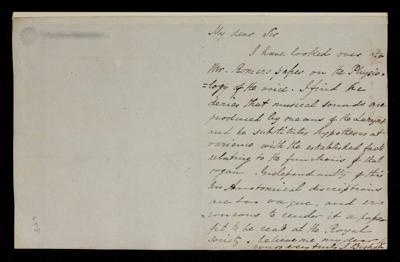 My dear Sir
I have looked over
Mr. Romer's paper on the Physio-
=logy of the voice. I find he
denies that musical sounds are
produced by means of the Larynx
and he substitutes hypotheses at
varience with the established fact
relating to the functions of that
organ. Independantly of this
his Anatomical descriptions
are too vague, and er-
roneous to render it a paper
fit to be read at the Royal
Society. believe me my dear Sir
yours very truly J Bishop